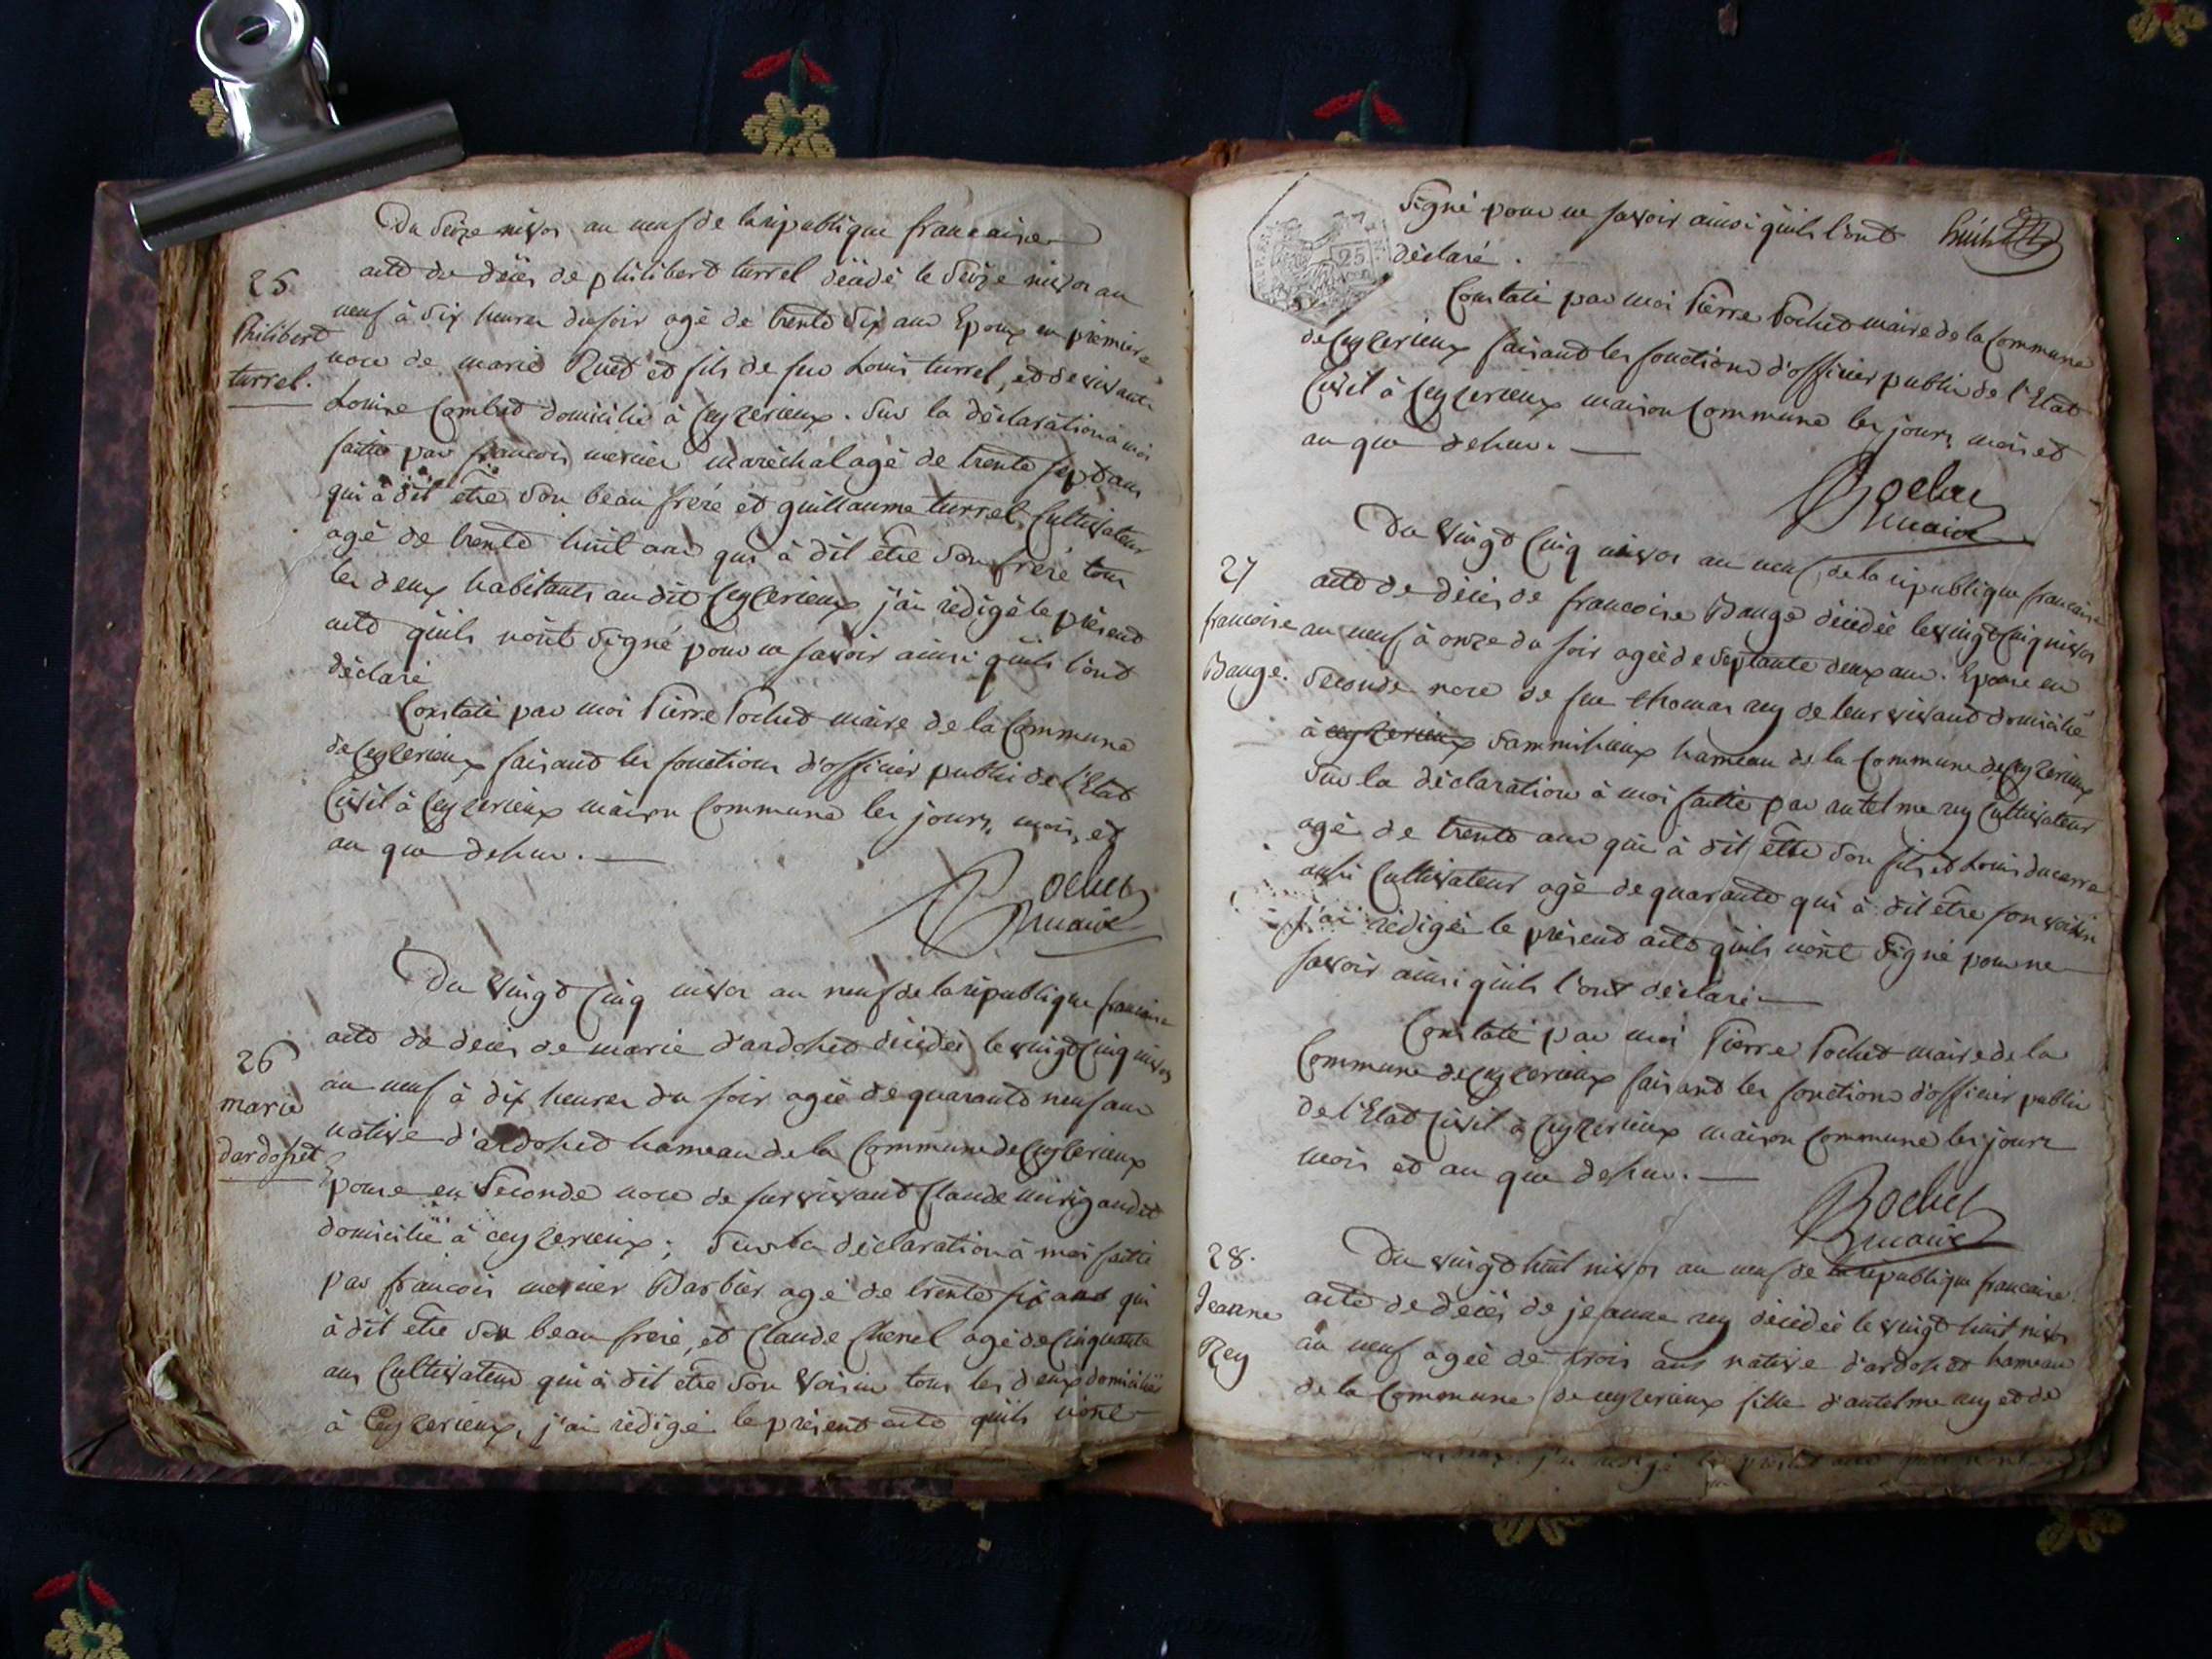 Du Seize nivos an neuf de la république francaise
25
Philibert
turrel.
acte de décès de philibert turrel décédé le Seize nivos an
neuf à Six heures du soir agé de trente Six ans Epoux en premiere
noce de marie Ruet et fils de feu Louis turrel, et de vivante
Louise Combet domicilié à Ceyzerieux. Sur la déclaration à moi
faitte par francois mercier maréchal agé de trente sept ans
qui à dit etre Son beau frere et guillaume turrel Cultivateur
agé de trente huit ans qui à dit etre Son frere tous
les deux habitants au dit Ceyzerieux j'ai rédigé le présent
acte qu'ils nónt Signé pour ne savoir ainsi qu'ils l'ont
déclaré
Constaté par moi Pierre Pochet maire de la Commune
de Ceyzerieux faisant les fonctions d'officier public de l'Etat
Civil à Ceyzerieux maison Commune les jours, mois, et
an que dessus.
Pochet
maire
Du vingt Cinq nivos an neuf de la république francaise
26
marie
dardoset
acte de décès de marie d'ardoset décédée le vingt Cinq nivos
an neuf à dix heures du soir agée de quarante neuf ans
native d'ardoset hameau de la Commune de Ceyzerieux
Epouse en Seconde noce de survivant Claude
domicilié à ceyzerieux; Sur la déclaration à moi faitte
par francois mercier Barbier agé de trente six ans qui
à dit etre Son beau frere, et Claude Chenel agé de Cinquante
ans Cultivateur qui à dit etre Son Voisin tous les deux domiciliés
à Ceyzerieux, j'ai rédigé le présent acte qu'ils nónt
huit
Signé pour ne savoir ainsi qu'ils l'ont
déclaré.
25
Constaté par moi Pierre Pochet maire de la Commune
de Ceyzerieux faisant les fonctions d'officier public de l'Etat
Civil à Ceyzerieux maison Commune les jours, mois et
an que dessus.
Pochet
maire
Du vingt Cinq nivos an neuf de la république francaise
27
francoise
Bauge.
acte de décès de francoise Bauge décédée le vingt Cinq nivos
an neuf à onze du soir agée de Septante deux ans. Epouse en
Seconde noce de feu thomas rey de leur vivant domicilié
à ceyzerieux Sammihieux hameau de la Commune de Ceyzerieux
Sur la déclaration à moi faitte par antelme rey Cultivateur
agé de trente ans qui à dit etre Son fils et Louis
aussi Cultivateur agé de quarante qui à dit etre son voisin
j'ai rédigé le présent acte qu'ils nónt Signé pour ne
savoir ainsi qu'ils l'ont déclaré
Constaté par moi Pierre Pochet maire de la
Commune de Ceyzerieux faisant les fonctions d'officier public
de l'Etat Civil à Ceyzerieux maison Commune les jours
mois et an que dessus.
Pochet
maire
Du vingt huit nivos an neuf de la république francaise
28.
Jeanne
Rey
acte de décès de jeanne rey décédée le vingt huit nivos
an neuf agée de trois ans native d'ardoset hameau
de la Commune de ceyzerieux fille d'antelme rey et de